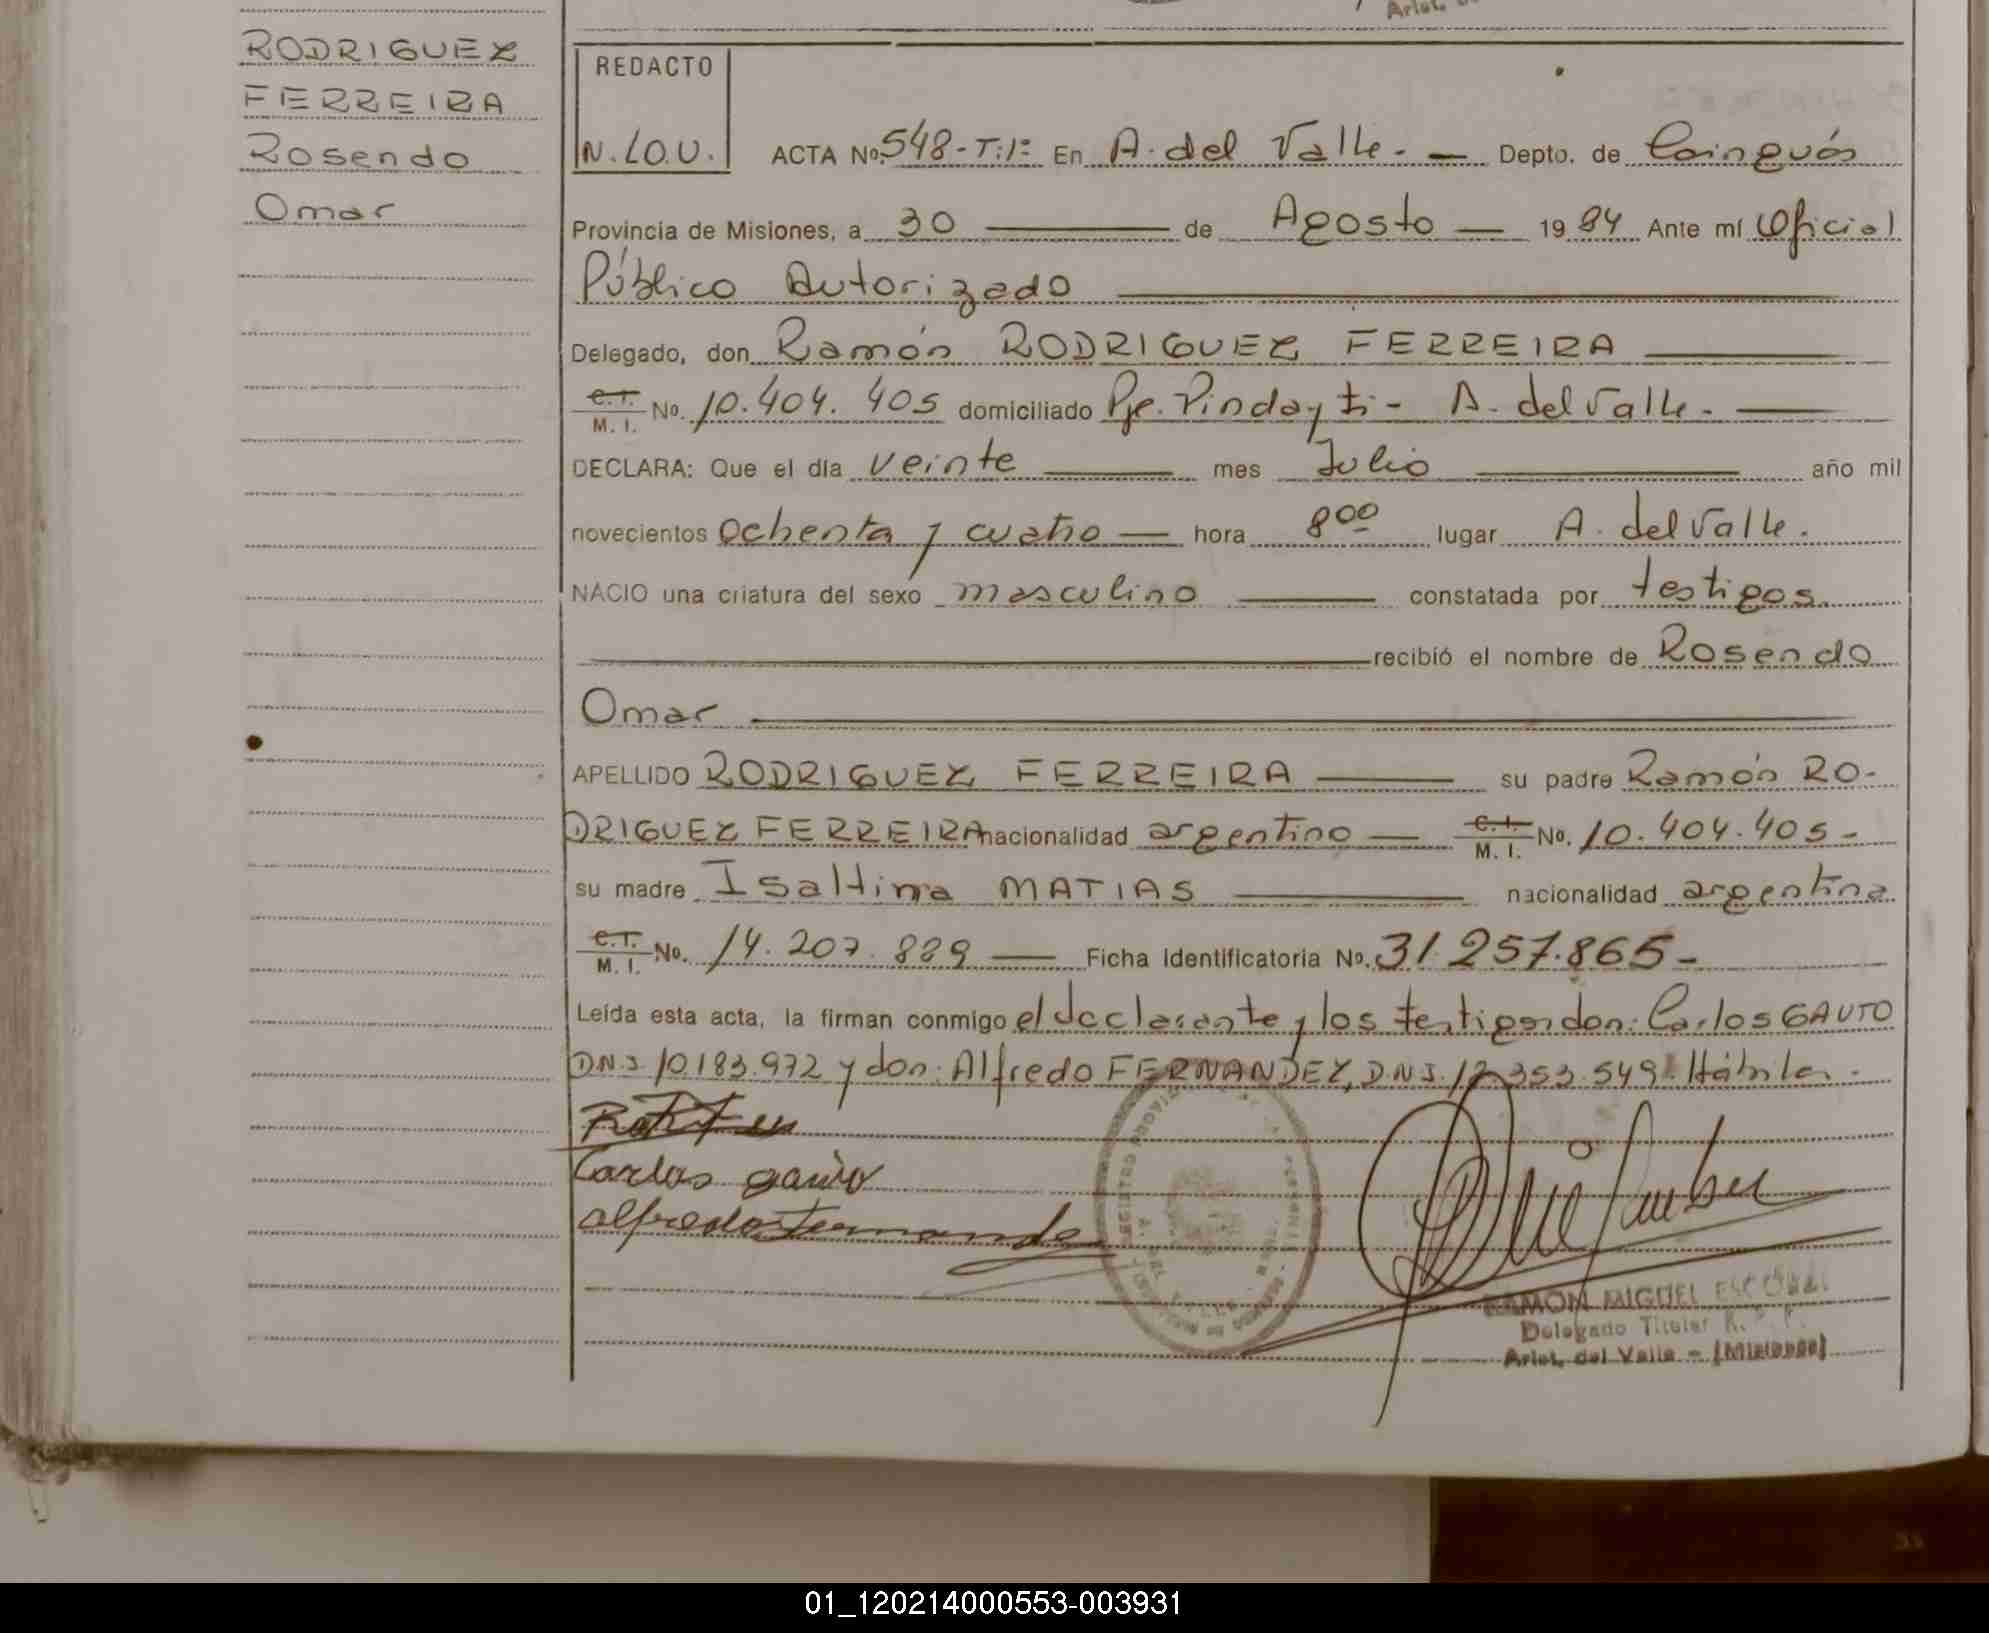 RODRIGUEZ
FERREIRA
Rosendo
Omar
REDACTO
N. LO.U.
ACTA No. 548-T:1º En A. del Valle.- Depto. de Cainguás
Provincia de Misiones, a 30 de Agosto 19 84 Ante mí Oficial
Público Autorizado
Delegado, don Ramón RODRIGUEZ FERREIRA
C.I. M. I. No. 10.404.405 domiciliado Pje. Pindayti - A. del Valle.-
DECLARA: Que el día veinte mes Julio año mil
novecientos ochenta y cuatro hora 8 00 lugar A. del Valle.
NACIO una criatura del sexo masculino constatada por testigos.
recibió el nombre de Rosendo
Omar
APELLIDO RODRIGUEZ FERREIRA su padre Ramón RO-
DRIGUEZ FERREIRA nacionalidad argentino C.I. M. I. No. 10.404.405-
su madre Isaltina MATIAS nacionalidad argentina
C.I. M. I. No. 14.207.889 Ficha Identificatoria No. 31.257.865-
Leída esta acta, la firman conmigo el declarante y los testigos don: Carlos GAUTO
D.N.I. 10.183.972 y don: Alfredo FERNANDEZ, D.N.I. 12.353.549 Hábiles.-
Carlos gauto
alfredo fernande
RAMON MIGUEL ESCOBAR
Delegado Titular R. P. P.
Arist. del Valle - (Misiones)
01_120214000553-003931